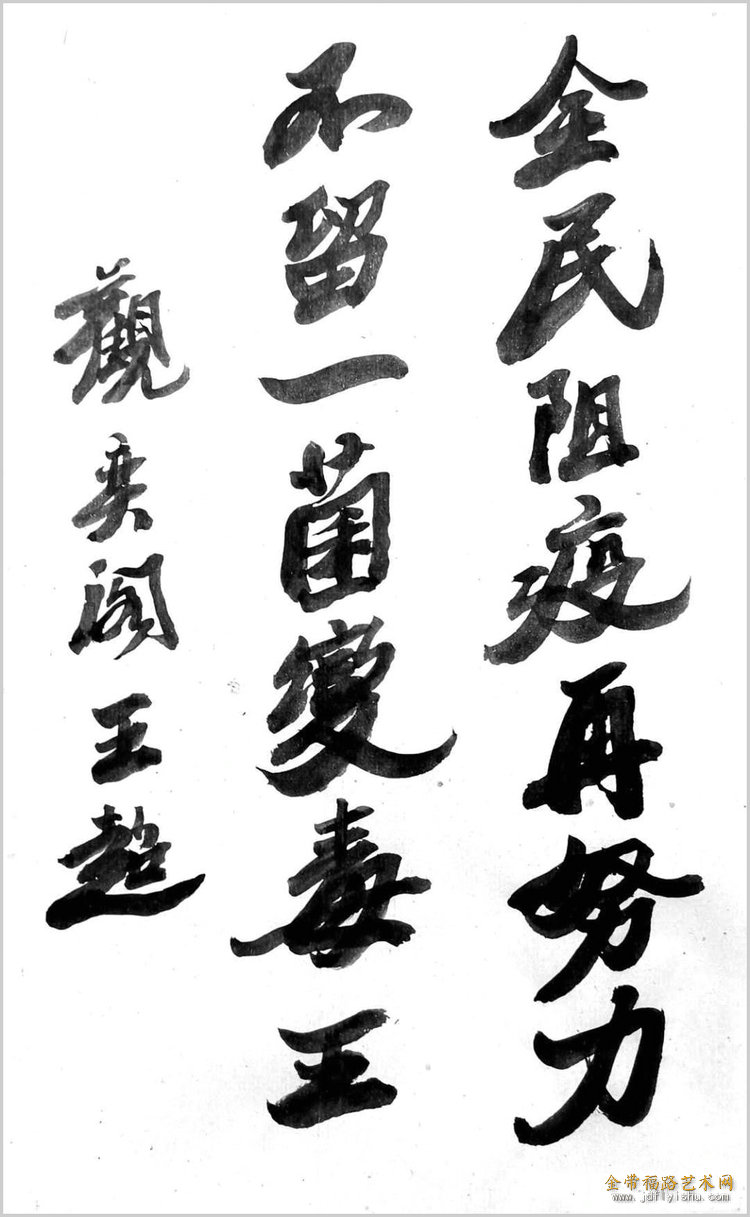 全民阻疫再努力
不留一菌變毒王
觀奕阁王超
金带福路艺术网
www.jdflyishu.com